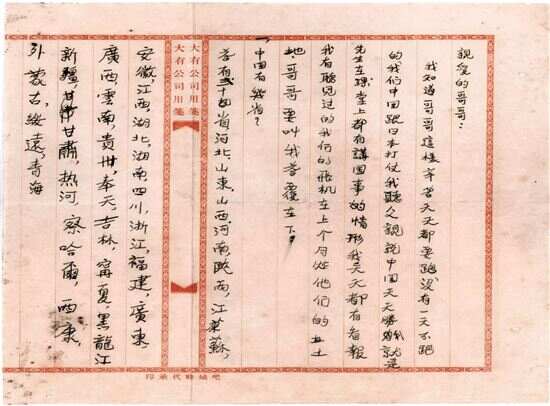 親愛的哥哥：
我知道哥哥這樣辛苦天天都要跑沒有一天不跑
的我們中國跟日本打仗我聽人說中国天天勝就是
先生在課堂上都有講国事的情形我天天都有看報
我有聽見过的我們的飛机在上个月炸他們的土
地，哥哥要叫我答覆在下。
一，中国有幾省？
答有二十四省河北，山東，山西，河南，陝西，江蘇，
大有公司用箋
大有公司用箋
安徽，江西，湖北，湖南四川，浙江，福建，廣東，
廣西，雲南，貴州，奉天，吉林，甯夏，黑龍江
新疆，甘肅，热河 察哈爾，西康，
外蒙古，綏遠，青海
吧城時代承印